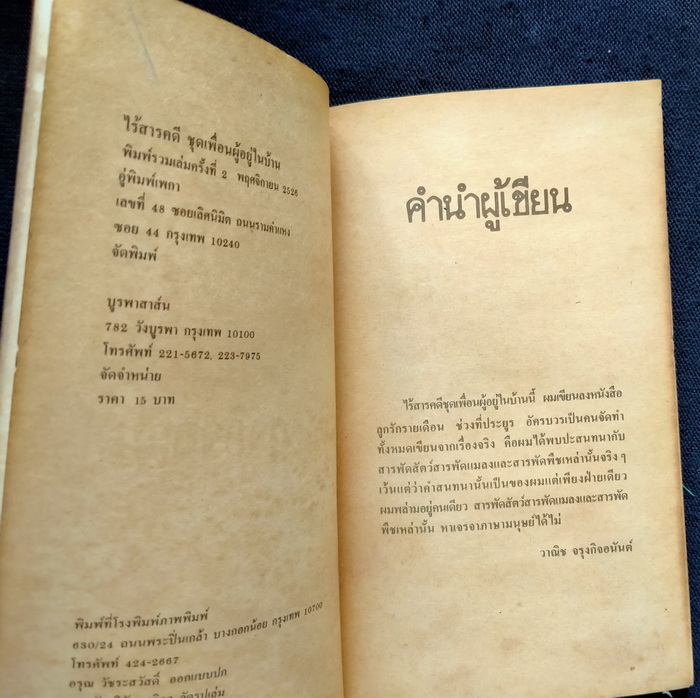 ไร้สารคดี ชุดเพื่อนผู้อยู่ในบ้าน
พิมพ์รวมเล่มครั้งที่ 2 พฤศจิกายน 2526
อู่พิมพ์เพกา
เลขที่ 48 ซอยเลิศนิมิต ถนนรามคำแหง
ซอย 44 กรุงเทพ 10240
จัดพิมพ์
บูรพาสาส์น
782 วังบูรพา กรุงเทพ 10100
โทรศัพท์ 221-5672, 223-7975
จัดจำหน่าย
ราคา 15 บาท
พิมพ์ที่โรงพิมพ์ภาพพิมพ์
630/24 ถนนพระปิ่นเกล้า บางกอกน้อย กรุงเทพ 10700
โทรศัพท์ 424-2667
อรุณ วัชระสวัสดิ์ ออกแบบปก
คำนำผู้เขียน
ไร้สารคดีชุดเพื่อนผู้อยู่ในบ้านนี้ ผมเขียนลงหนังสือ
ลูกรักรายเดือน ช่วงที่ประยูร อัครบวรเป็นคนจัดทำ
ทั้งหมดเขียนจากเรื่องจริง คือผมได้พบปะสนทนากับ
สารพัดสัตว์สารพัดแมลงและสารพัดพืชเหล่านั้นจริง ๆ
เว้นแต่ว่าคำสนทนานั้นเป็นของผมแต่เพียงฝ่ายเดียว
ผมพล่ามอยู่คนเดียว สารพัดสัตว์สารพัดแมลงและสารพัด
พืชเหล่านั้น หาเจรจาภาษามนุษย์ได้ไม่
วาณิช จรุงกิจอนันต์